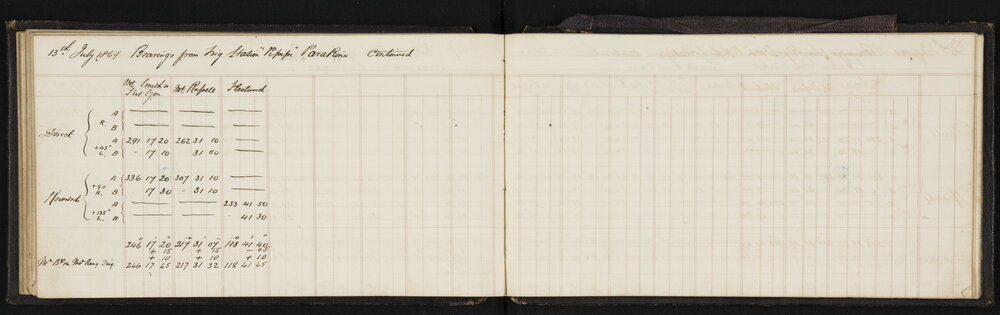 13th July 1864 Bearings from Trig Station "Pipipi" Parakino Continued
Mt Smith Mt Russell
Direct R. A
B
+45° L. A 291 17 20 262 31 10
B - 17 10 31 00
Reversed +90 R. A 336 17 20 307 31 10
B 17 30 - 31 10
+135° L. A 233 41 50
B - 41 30
246 17 20 217 31 07 118 41 40
+ 15 + 15 - 05
+ 10 + 10 + 10
246 17 45 217 31 32 118 41 45